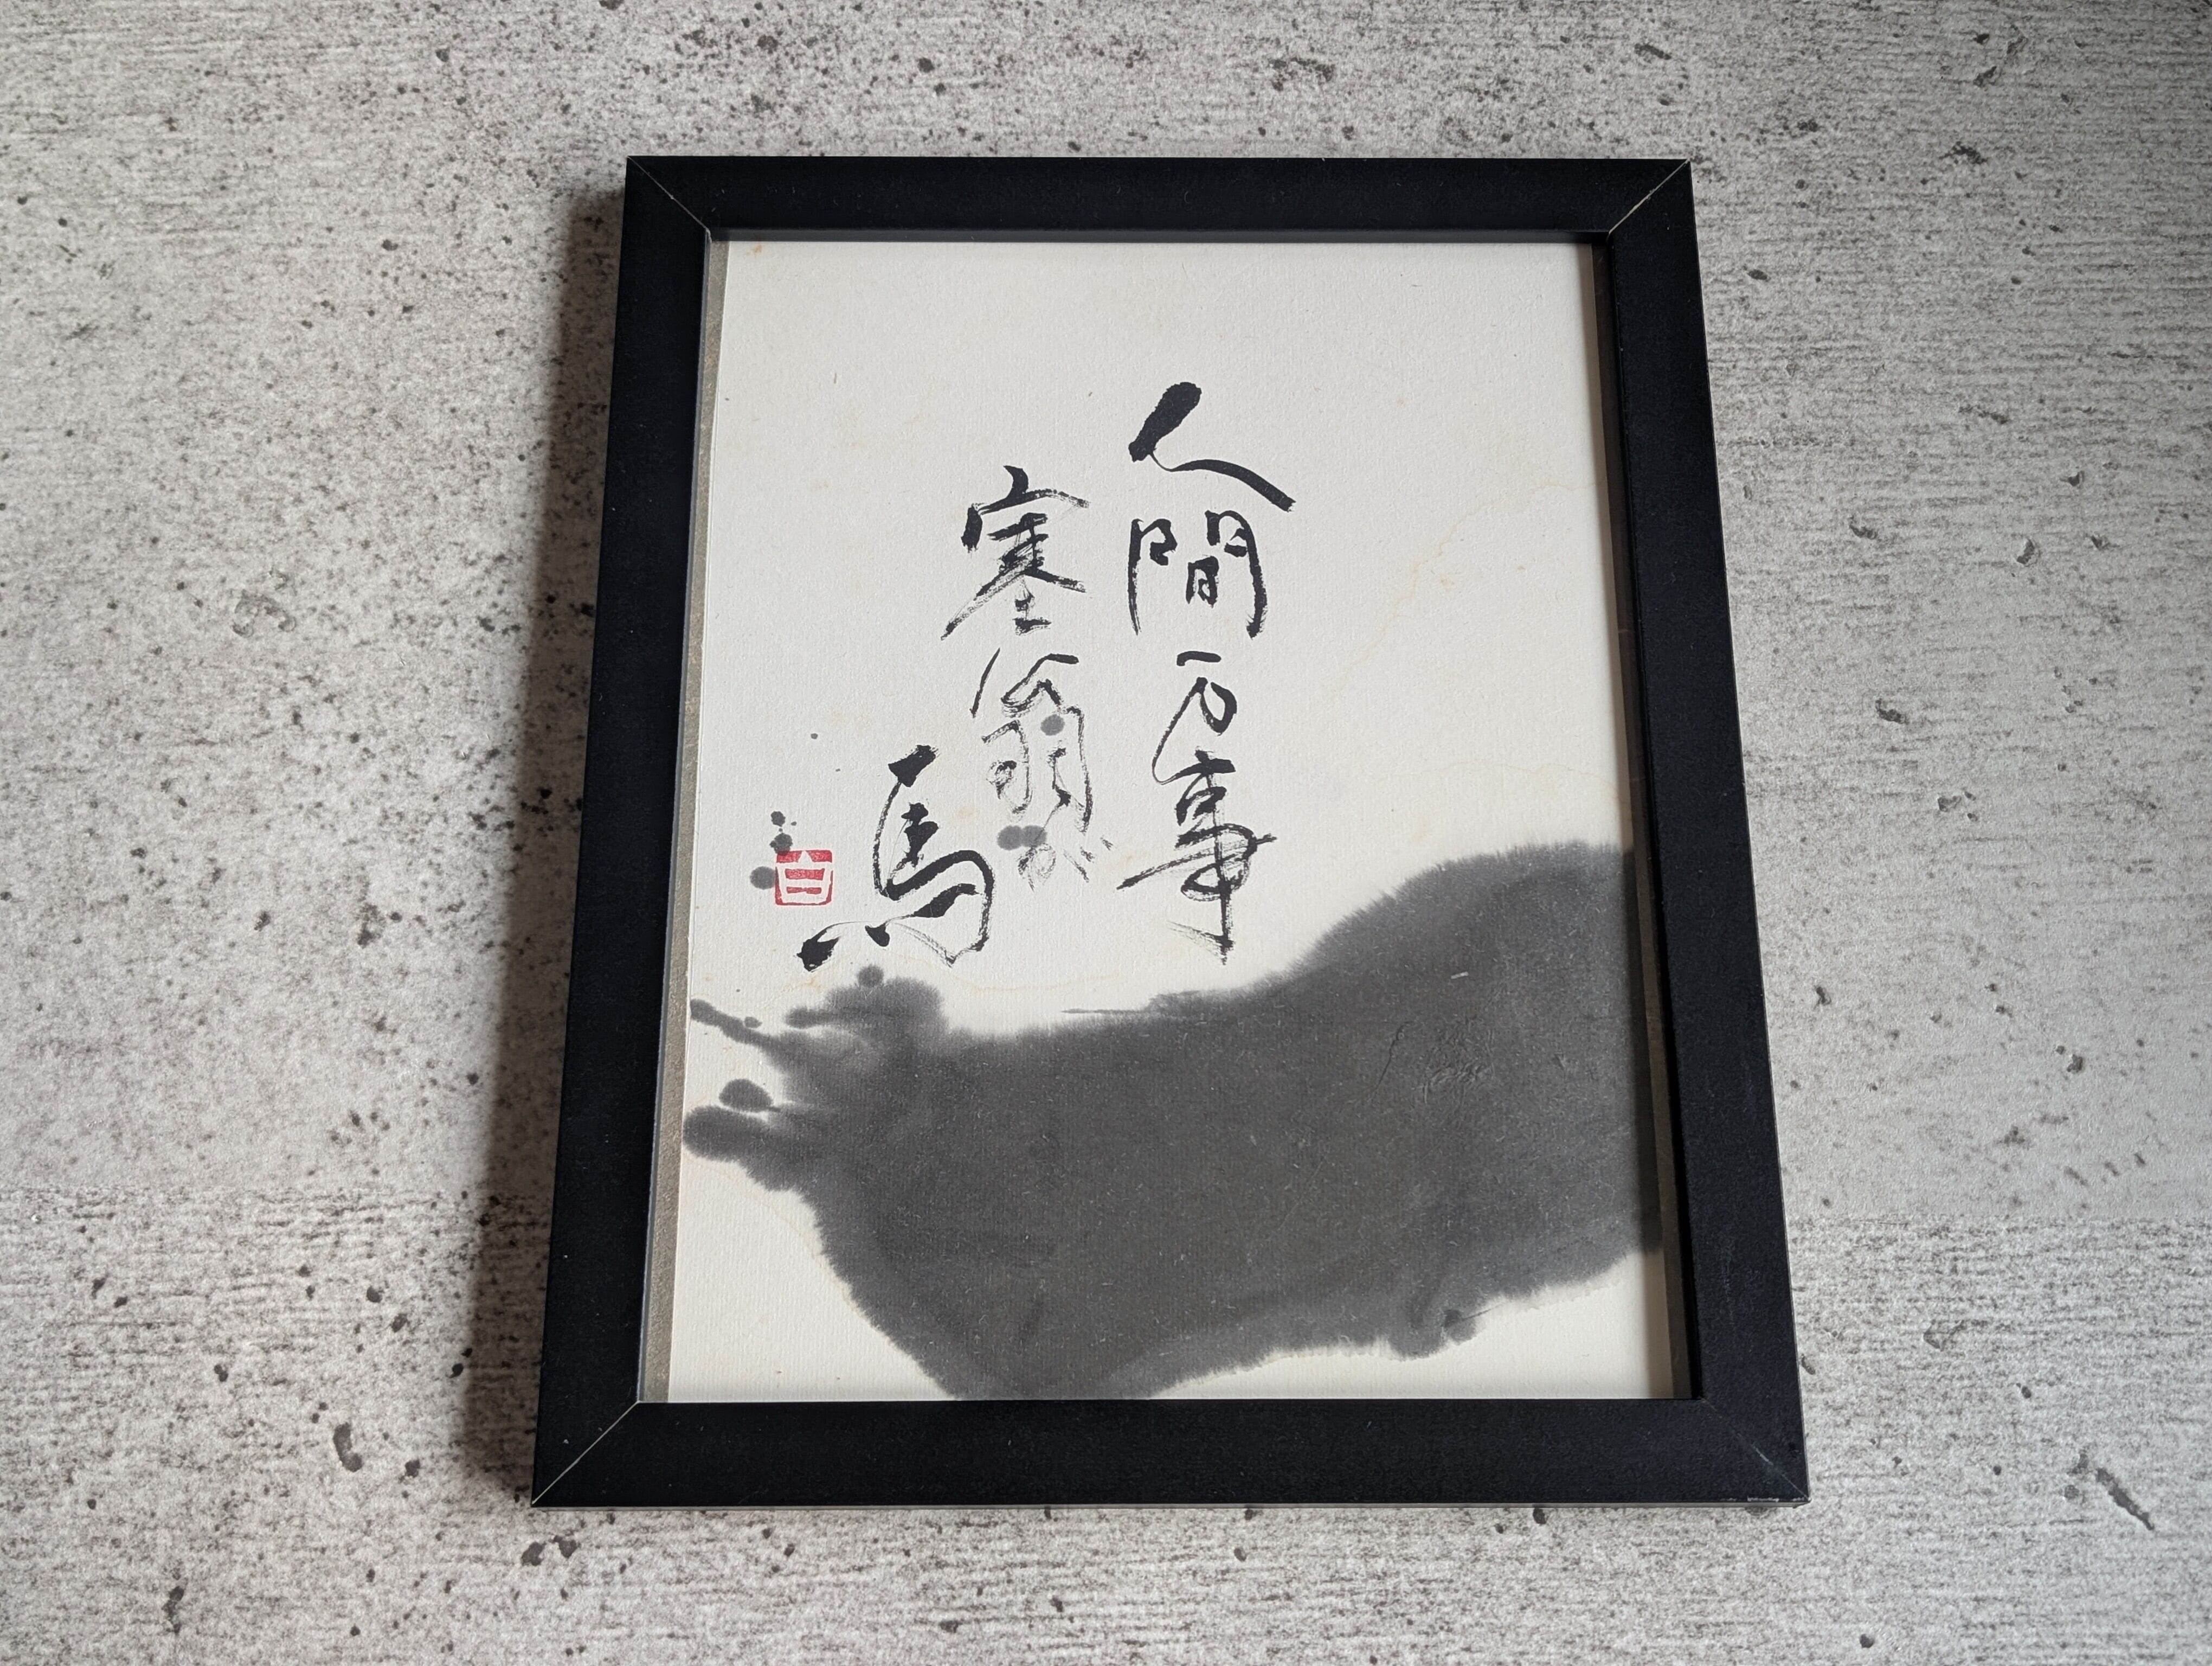 人間万事
塞翁が
馬